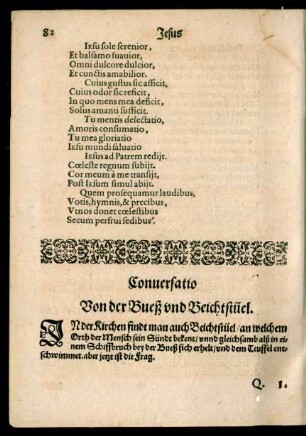 82 Jesus
Iesu sole serenior,
Et balsamo suauior,
Omni dulcore dulcior,
Et cunctis amabilior.
Cuius gustus sic afficit,
Cuius odor sic reficit,
In quo mens mea deficit,
Solus amanti sufficit.
Tu mentis delectatio,
Amoris consumatio,
Tu mea gloriatio
Iesu mundi saluatio
Iesus ad Patrem redijt.
Cœleste regnum subijt.
Cor meum à me transijt,
Post Iesum simul abijt.
Quem prosequamur laudibus,
Votis, hymnis, & precibus,
Vt nos donet cœlestibus
Secum perfrui sedibus.
Conuersatio
Von der Bueß vnd Beichtstüel.
IN der Kirchen findt man auch Beichtstüel / an welchem
Orth der Mensch sein Sündt bekent / vnnd gleichsamb alß in ei-
nem Schiffbruch bey der Bueß sich erhelt / vnd dem Teuffel ent-
schwimmet. aber jetzt ist die Frag.
Q. 1.